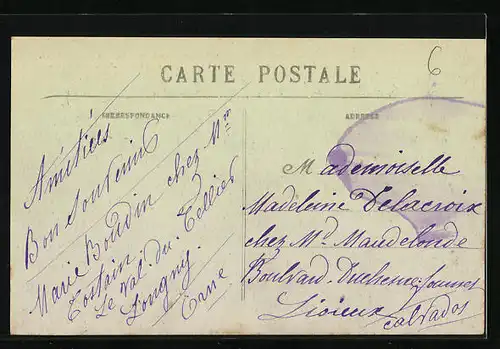 6
CARTE POSTALE
CORRESPONDANCE
ADRESSE
Amitiés
Bon Souvenir
Marie Boudin chez Mr
Tossain
Le Val-du-Tellier
Longny.
Orne
Mademoiselle
Madeleine Delacroix
chez Md Maudelonde
Boulvard-Duchesne-fournet
Lisieux
calvados